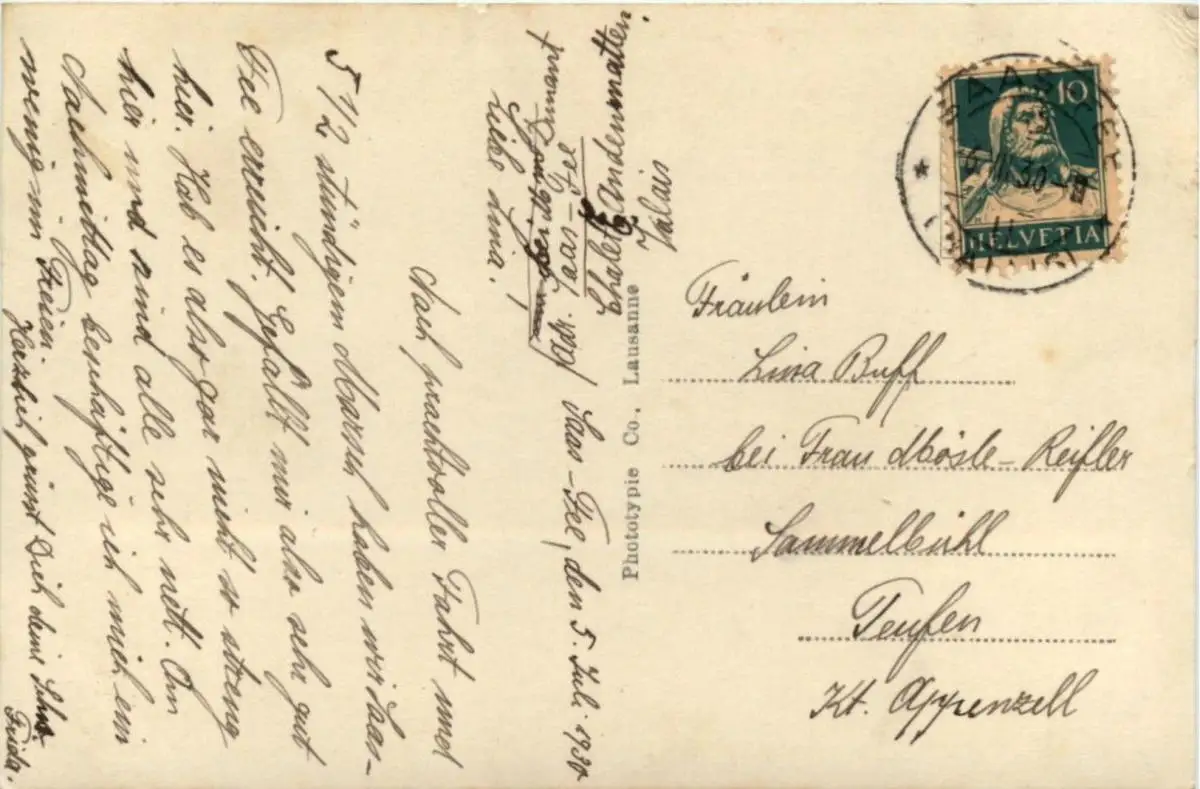 Saas-Fee, den 5. Juli 1930
Adr. Saas-Fee
Chalet Andenmatten
Valais
Liebe Lina!
Nach prachtvoller Fahrt und
5 1/2 stündigem Marsch haben wir Saas-
Fee erreicht. Gefällt mir also sehr gut
hier. Hab es also gar nicht so streng
hier und sind alle sehr nett. Am
Nachmittag beschäftige ich mich ein
wenig im Freien.
Herzlich grüsst Dich deine
Frida.
Phototypie Co., Lausanne
10
HELVETIA
SAAS-FEE
Fräulein
Lina Buff
bei Frau Mösle-Reifler
Sammelbühl
Teufen
Kt. Appenzell